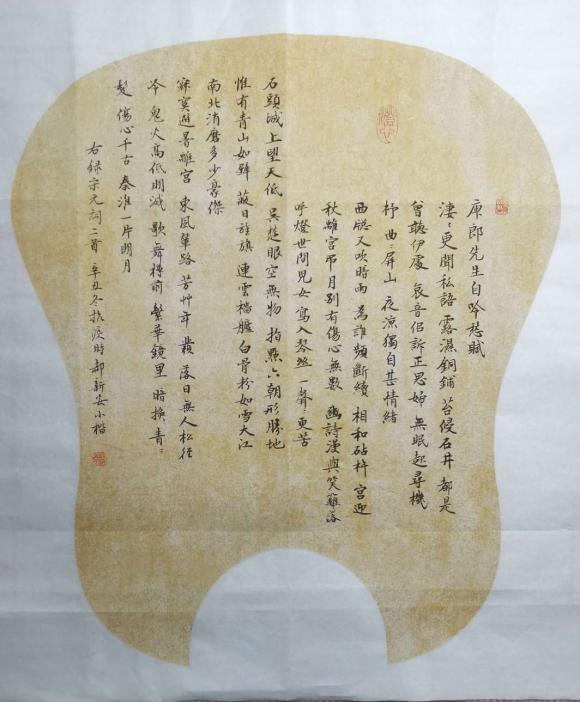 庾郎先生自吟愁賦
淒〻更聞私語 露濕銅鋪 苔侵石井 都是
曾聽伊處 哀音侶訴正思婦 無眠起尋機
杼 曲〻屏山 夜涼獨自甚情緒
西牕又吹時雨 為誰頻斷續 相和砧杵 宮迎
秋離宮弔月別有傷心無數 豳詩漫與笑籬落
呼燈世間兒女 寫入琴絲 一聲〻更苦
石頭城上望天低 吳楚眼空無物 指點六朝形勝地
惟有青山如壁 蔽日旌旗 連雲檣艫 白骨紛如雪大江
南北消磨多少豪傑
寂寞避暑離宮 東風輦路 芳艸年發 落日無人松徑
冷 鬼火高低明滅 歌舞樽前 繁華鏡里 暗換青〻
髮 傷心千古 秦淮一片明月
右錄宋元詞二首 辛丑冬於滬時邵新安小楷